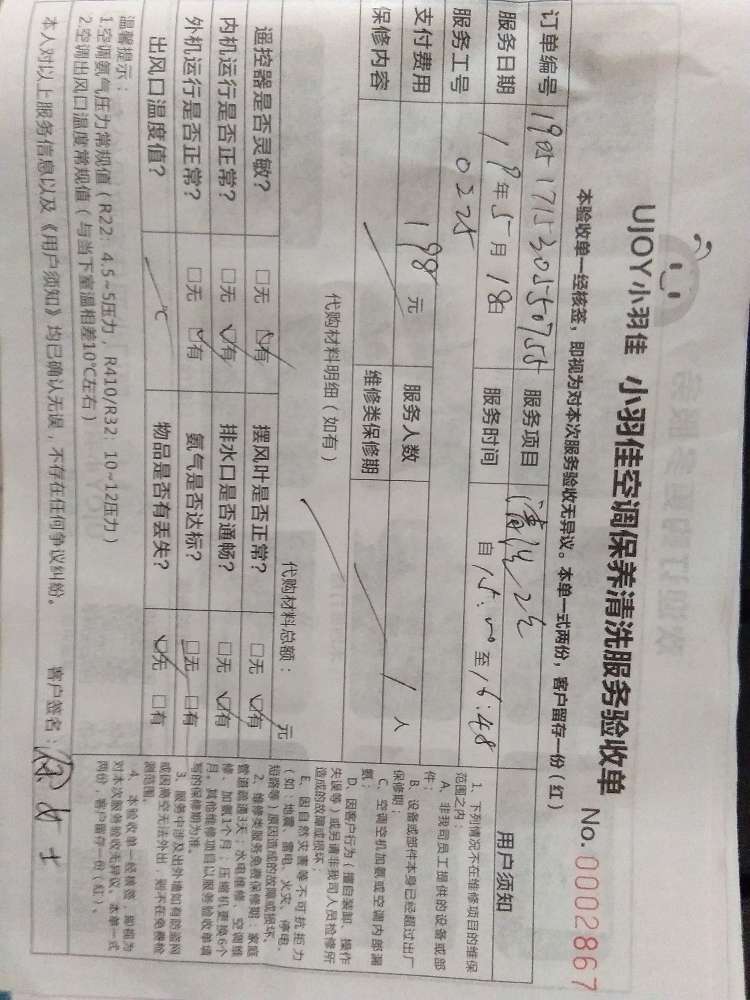 UJOY小羽佳 小羽佳空调保养清洗服务验收单 No. 0002867
本验收单一经核签，即视为对本次服务验收无异议。本单一式两份，客户留存一份（红）
订单编号 服务项目 清洗2台
服务日期 19年5月18日 服务时间 自15:00至16:48
服务工号 0225
支付费用 198元 服务人数 1人
保修内容 维修类保修期
代购材料明细（如有）
代购材料总额： 元
遥控器是否灵敏? □无 ☑有 摆风叶是否正常? □无 ☑有
内机运行是否正常? □无 ☑有 排水口是否通畅? □无 ☑有
外机运行是否正常? □无 ☑有 氨气是否达标? □无 □有
出风口温度值? ℃ 物品是否有丢失? ☑无 □有
温馨提示：
1.空调氨气压力常规值（R22：4.5~5压力，R410/R32：10~12压力）
2.空调出风口温度常规值（与当下室温相差10℃左右）
本人对以上服务信息以及《用户须知》均已确认无误，不存在任何争议纠纷。 客户签名：徐女士
用户须知
1、下列情况不在维修项目的维保
范围之内：
A、非我司员工提供的设备或部
件；
B、设备或部件本身已经超过出厂
保修期；
C、空调空机加氨或空调内部漏
氨；
D、因客户行为（擅自装卸、操作
失误等）或另请非我司人员检修所
造成的故障或损坏；
E、因自然灾害等不可抗拒力
（如：地震、雷电、火灾、停电、
短路等）原因造成的故障或损坏。
2、维修类服务免费保修期：家庭
管道疏通3天；水电维修、空调维
修、加氨1个月；压缩机更换6个
月。其他维修项目以服务验收单填
写的保修期为准。
3、服务中涉及出外墙如有防盗网
或因高空无法外出，则不在免费检
测范围。
4、本验收单一经核签，即视为
对本次服务验收无异议。本单一式
两份，客户留存一份（红）。